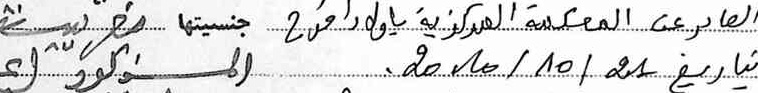 الصادر عن المحكمة المركزية بأولاد افرج جنسيتها مغربية
بتاريخ 21/10/2020. المذكور